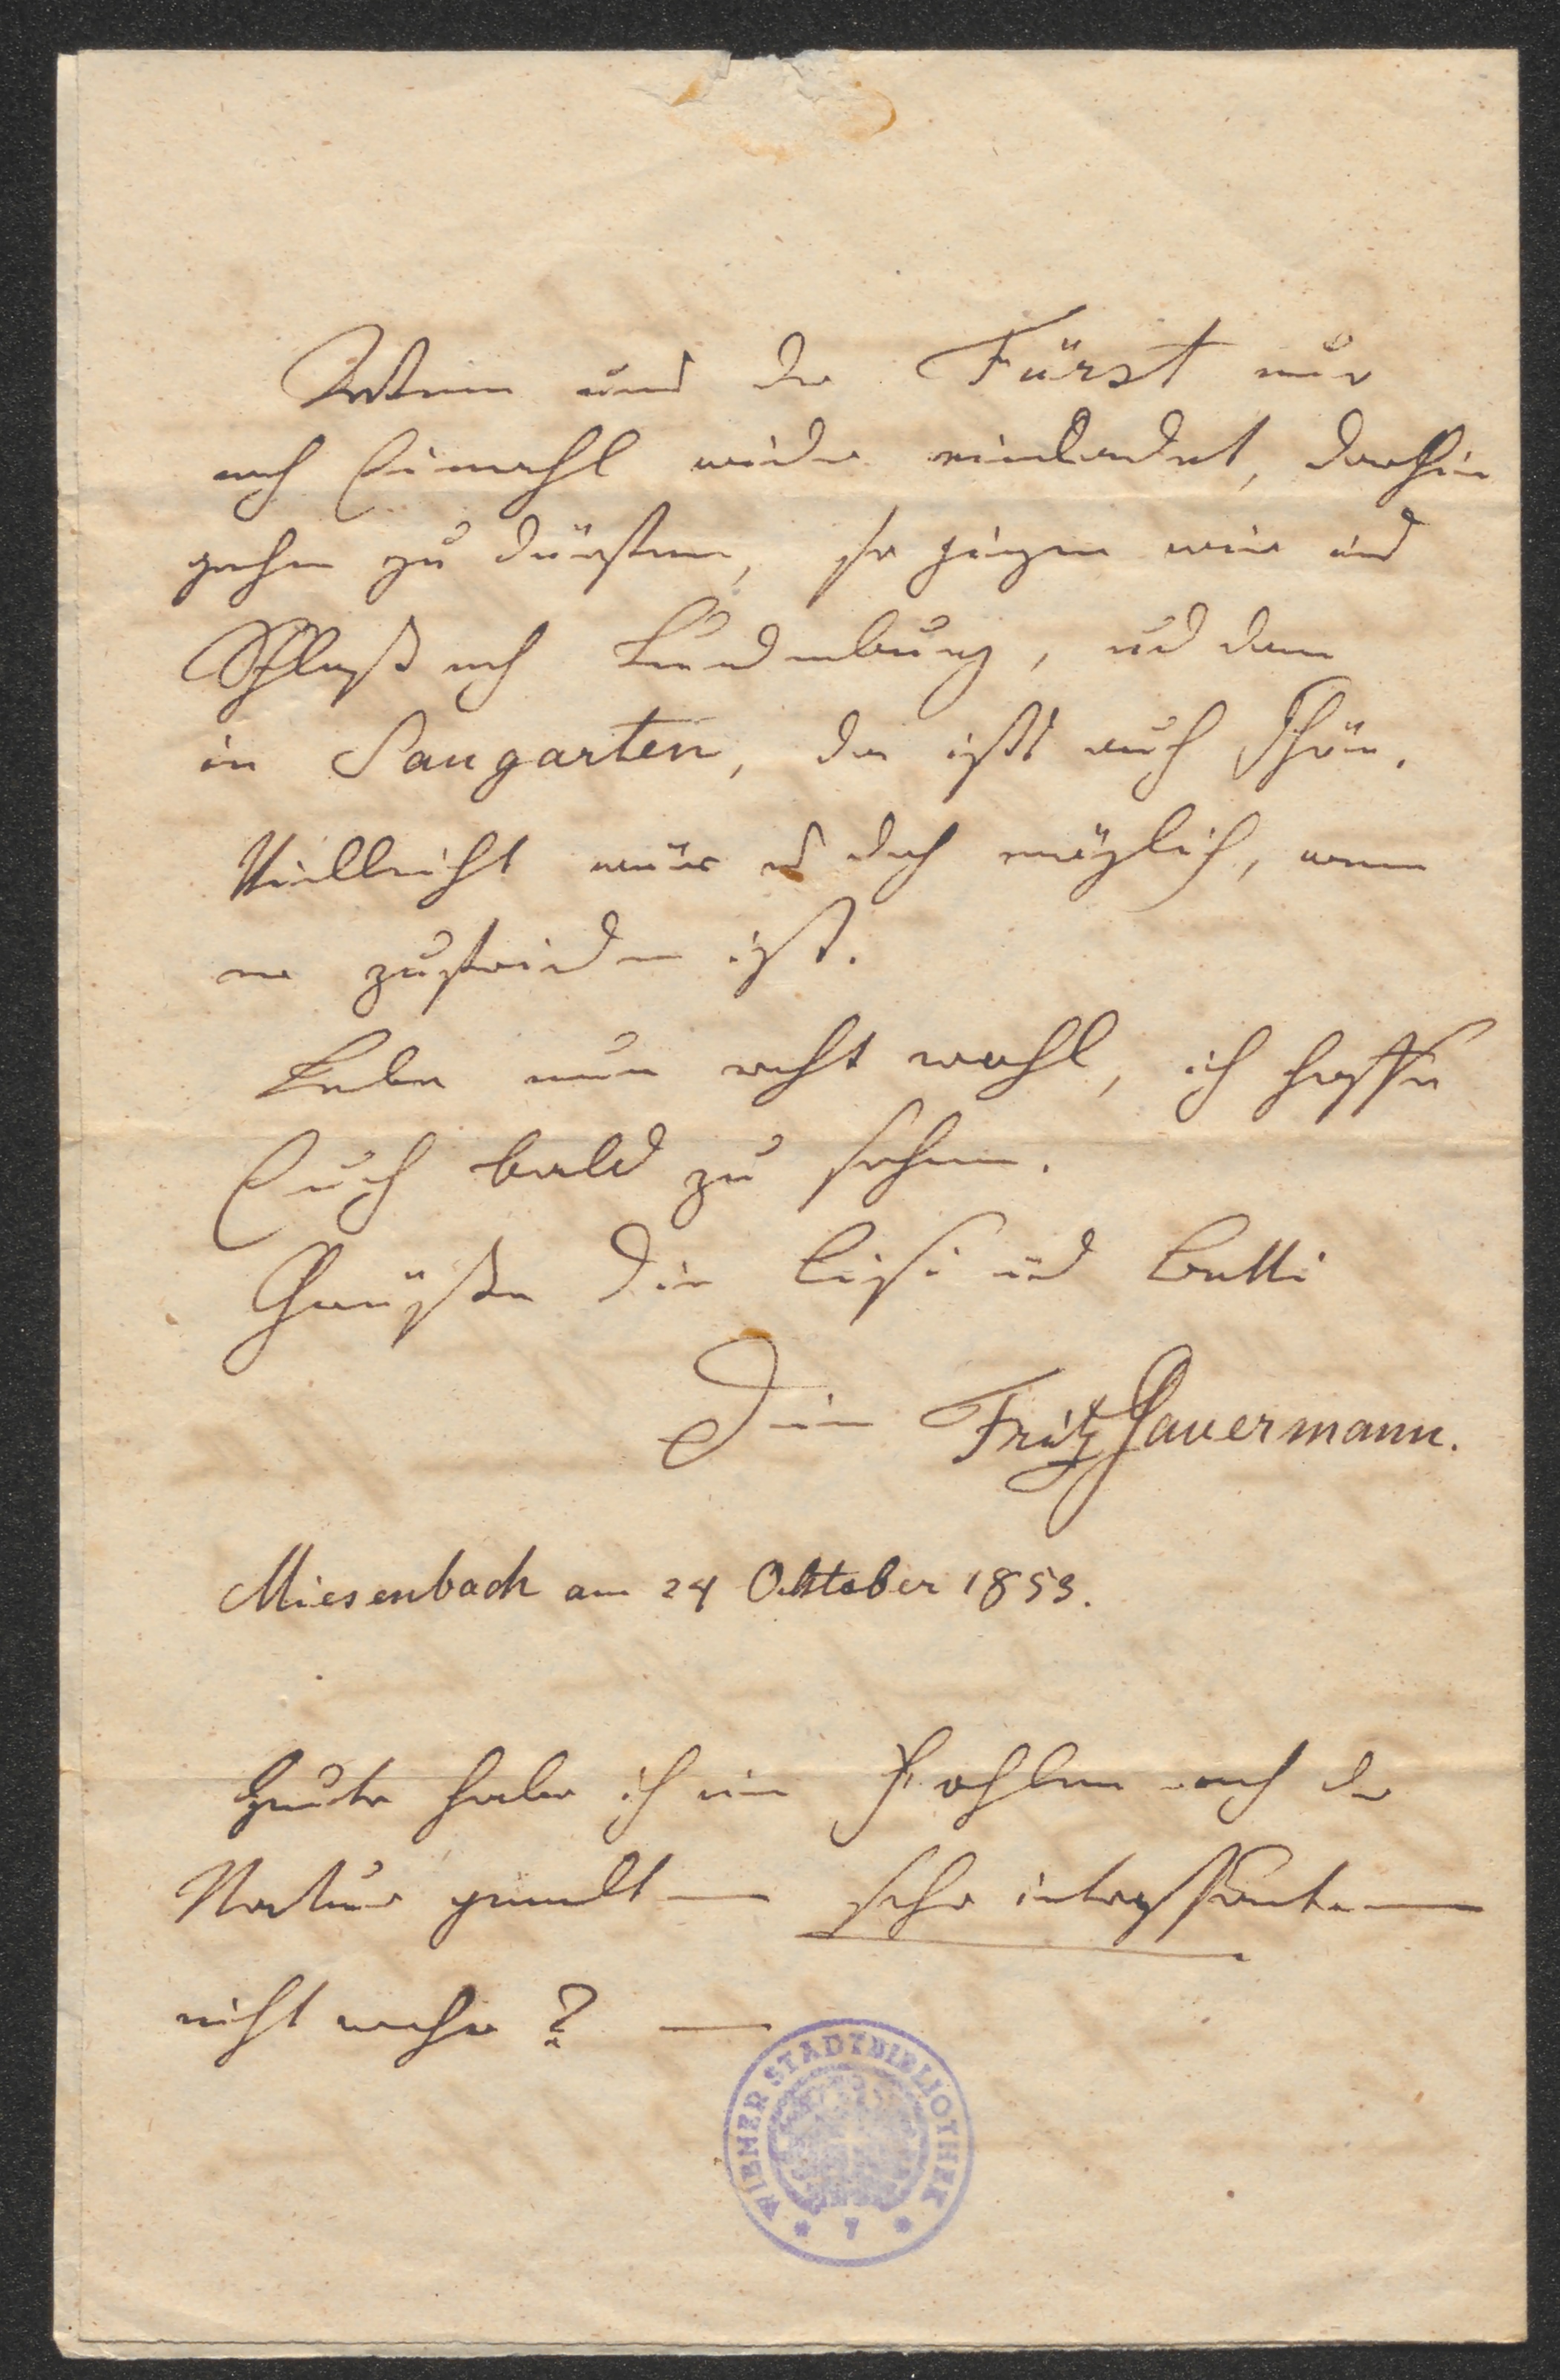 Wenn uns der Fürst nur
noch Einmahl wieder einladet, dorthin
gehen zu dürfen, so gingen wir ins
Schloß nach Lundenburg, und dann
in Saugarten, da ists auch Schön.
Vielleicht wär es doch möglich, wenn
er zufrieden ist.
Lebe nun recht wohl, ich hoffe
Euch bald zu sehen.
Grüße die Lisi und Betti
Dein Fritz Gauermann.
Miesenbach am 24 Oktober 1853.
Heute habe ich ein Fohlen nach der
Natur gemalt — sehr interessant —
nicht wahr? —
WIENER STADTBIBLIOTHEK
* 7 *